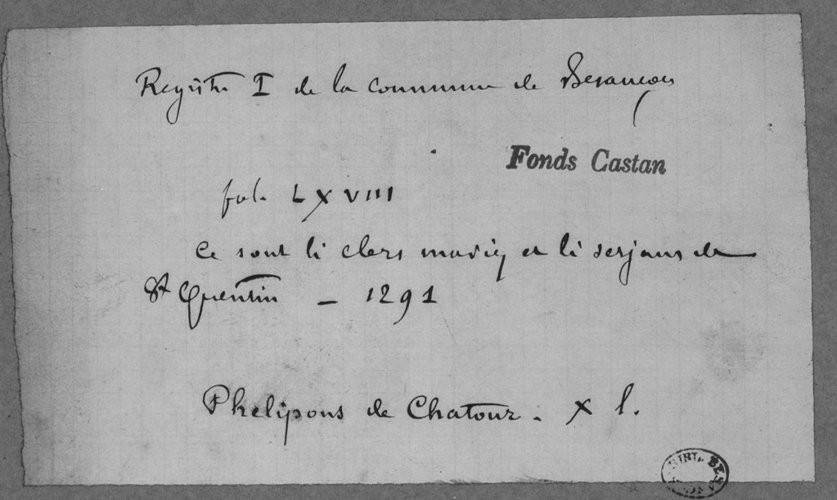 Registre I de la commune de Besançon
Fonds Castan
fol. LXVIII
Ce sont li clers mariez et li serjans de
St Quentin — 1291
Phelipons de Chatour. X l.